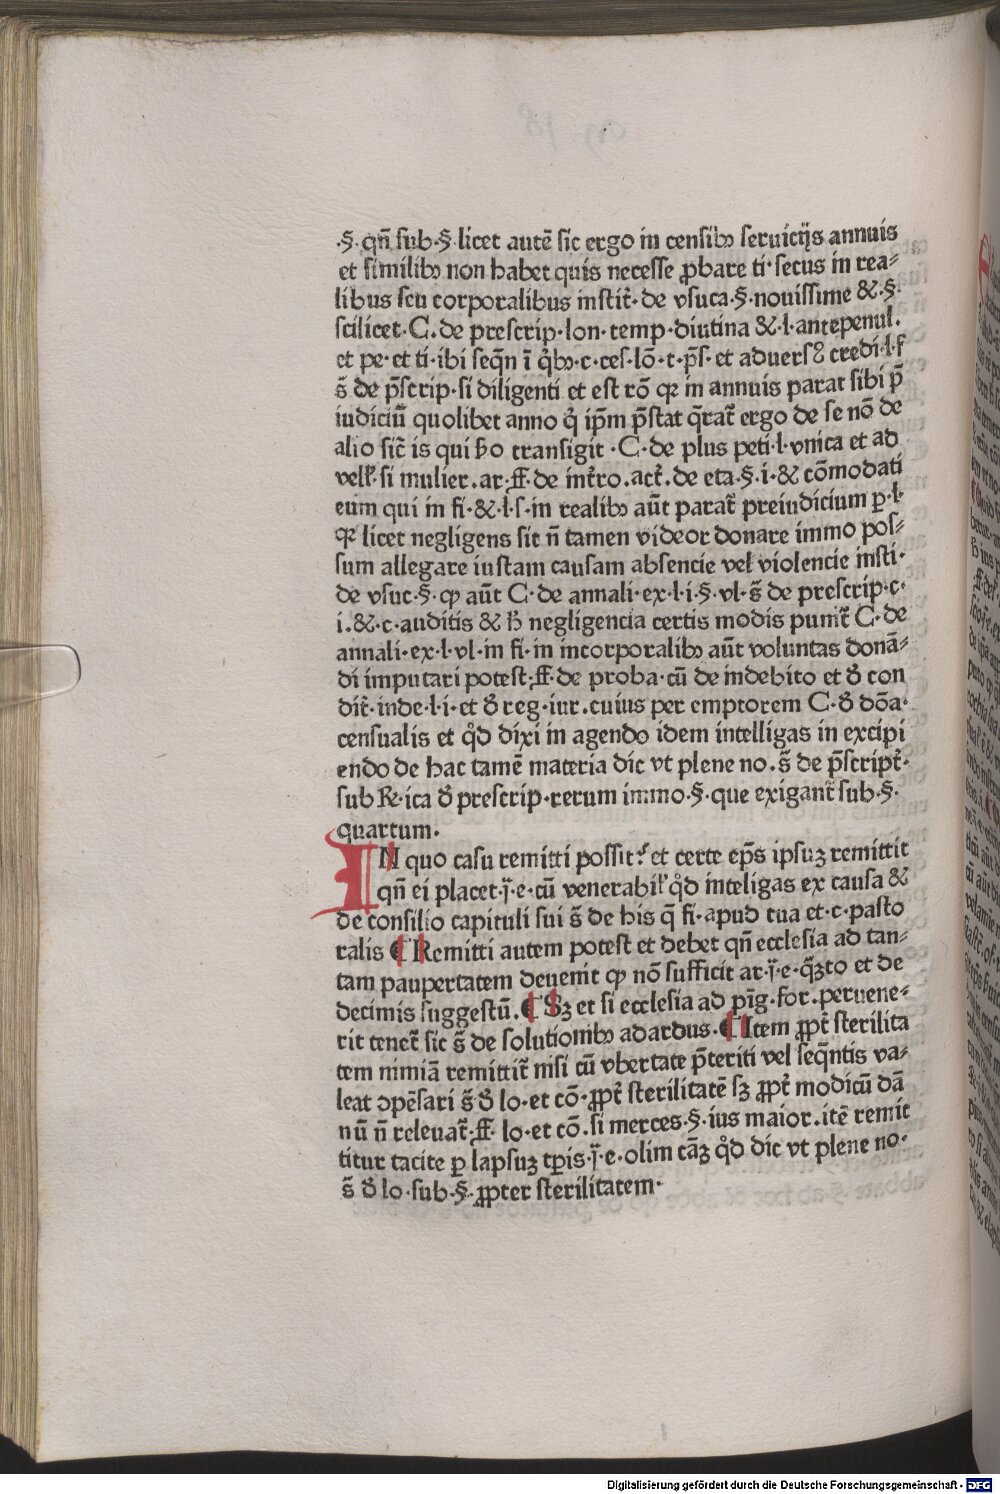 ·§· qñ sub·§·licet autē sic ergo in censibꝫ seruicijs annuis
et similibꝫ non habet quis necesse ꝓbare ti· secus in rea⸗
libus seu corporalibus instit̃· de vsuca·§·nouissime &·§·
scilicet·C·de prescrip·lon·temp·diutina &·l·antepenul.
et pe·et ti·ibi seq̄n ī q̊bꝫ·c·ces·lō·t·p̄s·et aduersꝰ credi·l·f
s̄ de p̄scrip·si diligenti et est rō qꝛ in annuis parat sibi p̄
iudiciū quolibet anno q̊ ip̄m p̄stat q̄rat̃ ergo de se nō de
alio sic̃ is qui ƀo transigit ·C·de plus peti·l·vnica et ad
velł·si mulier.ar·ff·de int̃ro.act̃.de eta·§·i·& cōmodati
eum qui in fi·&·l·s·in realibꝫ aūt parat̃ preiudicium ꝑ·l·
qꝛ licet negligens sit ñ tamen videor donare immo pos⸗
sum allegare iustam causam absencie vel violencie insti·
de vsuc·§·ꝙ aūt C·de annali·ex·l·i·§·vl·s̄ de prescrip·c·
i·&·c·auditis & ħ negligencia certis modis punit̃ C·de
annali·ex·l·vl·in fi·in incorporalibꝫ aūt voluntas donā⸗
di imputari potest·ff·de proba·cū de indebito et ð con
dic̃·inde·l·i·et ð reg·iur.cuius per emptorem C·ð dōa·
censualis et qd̊ dixi in agendo idem intelligas in excipi
endo de hac tamē materia dic vt plene no.s̄ de p̄script̃·
sub Rͨ·ica ð prescrip·rerum immo·§·que exigant̃ sub·§·
quartum.
IN quo casu remitti possit? et certe ep̄s ipsuꝫ remittit
qñ ei placet·j̄·e·cū venerabił qd̊ inteligas ex causa &
de consilio capituli sui s̄ de his q̄ fi·apud tua et·c·pasto
ralis ¶ Remitti autem potest et debet qñ ecclesia ad tan⸗
tam paupertatem deuenit ꝙ nō sufficit ar·j̄·e·q̄ꝫto et de
decimis suggestū.¶ Sꝫ et si ecclesia ad pīg·for.peruene⸗
rit tenet̃ sic s̄ de solutionibꝫ adardus·¶ Item ꝓpt̃ sterilita
tem nimiā remittit̃ nisi cū vbertate p̄teriti vel seq̄ntis va⸗
leat ↄpēsari s̄ ð lo·et cō·ꝓpt̃ sterilitatē sꝫ ꝓpt̃ modicū dā
nū ñ releuat̃·ff· lo·et cō·si merces·§·ius maior.itē remit
titur tacite ꝑ lapsuꝫ tꝑis·j̄·e·olim cāꝫ qd̊ dic vt plene no·
s̄ ð lo·sub·§·ꝓpter sterilitatem·
Digitalisierung gefördert durch die Deutsche Forschungsgemeinschaft - DFG